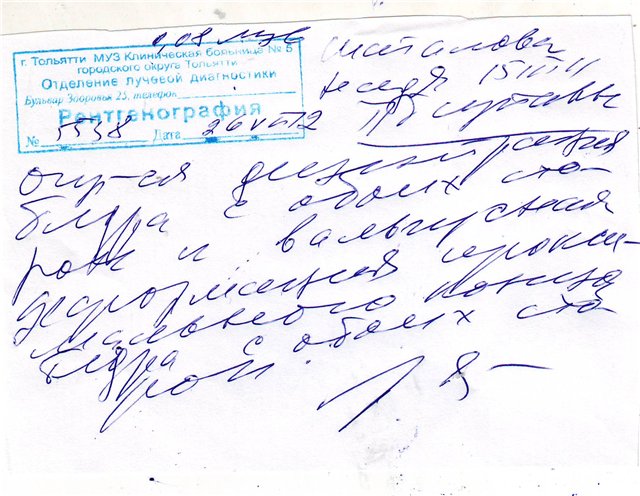 0,08 мзв
г. Тольятти МУЗ Клиническая больница № 5
городского округа Тольятти
Отделение лучевой диагностики
Бульвар Здоровья 25, телефон
Рентгенография
№ 5538 Дата 26 VII 12
Шаталова
15 III 11
Т/б суставы
опр-ся децентрация
бедра с обоих сто-
рон и вальгусная
деформация прокси-
мального конца
бедра с обоих сто-
рон.